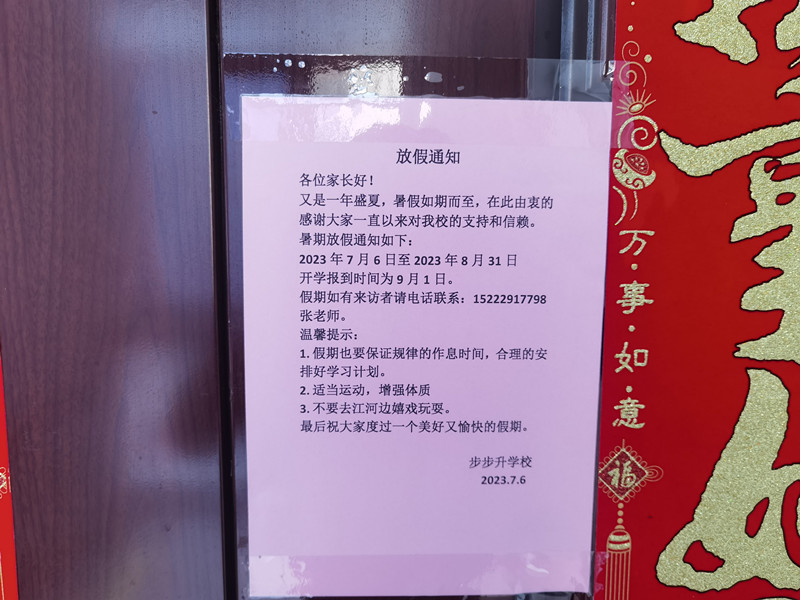 放假通知
各位家长好！
又是一年盛夏，暑假如期而至，在此由衷的
感谢大家一直以来对我校的支持和信赖。
暑期放假通知如下：
2023 年 7 月 6 日至 2023 年 8 月 31 日
开学报到时间为 9 月 1 日。
假期如有来访者请电话联系：15222917798
张老师。
温馨提示：
1. 假期也要保证规律的作息时间，合理的安
排好学习计划。
2. 适当运动，增强体质
3. 不要去江河边嬉戏玩耍。
最后祝大家度过一个美好又愉快的假期。
步步升学校
2023.7.6
万·事·如·意
福